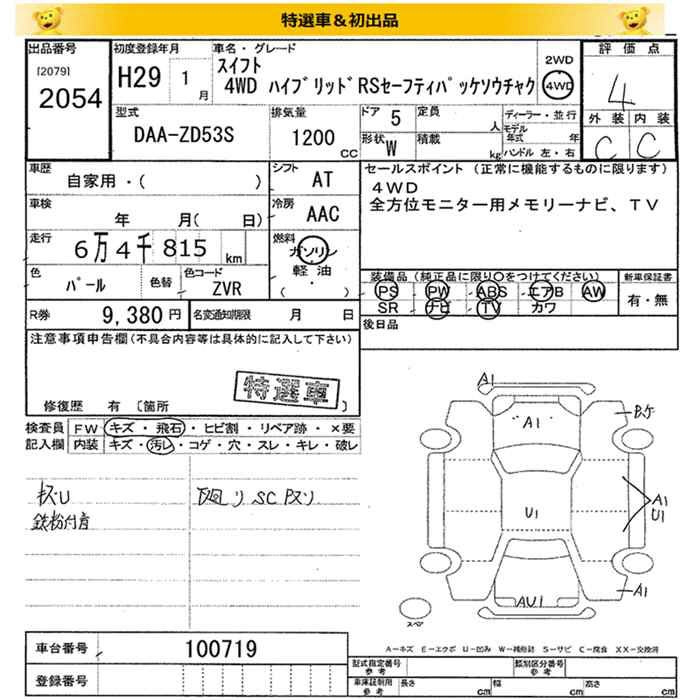 特選車＆初出品
出品番号
[2079]
2054
初度登録年月
H29 1月
車名・グレード
スイフト
4WD ハイブリッドRSセーフティパッケソウチャク
2WD
4WD
評価点
4
外装 内装
C C
型式
DAA-ZD53S
排気量
1200 CC
ドア 5
定員 人
形状 W
積載 kg
ディーラー・並行
モデル年式 年
ハンドル 左・右
車歴
自家用・( )
シフト AT
車検
年 月( 日)
冷房 AAC
走行
6万4千815 km
燃料
ガソリン
軽油
( ・ )
色
パール
色替
色コード
ZVR
R券 9,380円
名変通知期限 月 日
セールスポイント (正常に機能するものに限ります)
4WD
全方位モニター用メモリーナビ、TV
装備品(純正品に限り○をつけてください)
PS PW ABS エアB AW
SR ナビ TV カワ
新車保証書
有・無
後日品
注意事項申告欄(不具合内容等は具体的に記入して下さい)
特選車
修復歴 有 [箇所 ]
検査員記入欄
FW キズ・飛石・ヒビ割・リペア跡・×要
内装 キズ・汚レ・コゲ・穴・スレ・キレ・破レ
キズU
鉄粉付着
下廻り SC キズソ
A1
A1
A1
U1
U1
A1
AU1
スペア
車台番号 100719
登録番号
A-キズ E-エクボ U-凹み W-補修跡 S-サビ C-腐食 XX-交換済
型式指定番号 参考
類別区分番号 参考
車庫証明用 参考
長さ cm
幅 cm
高さ cm